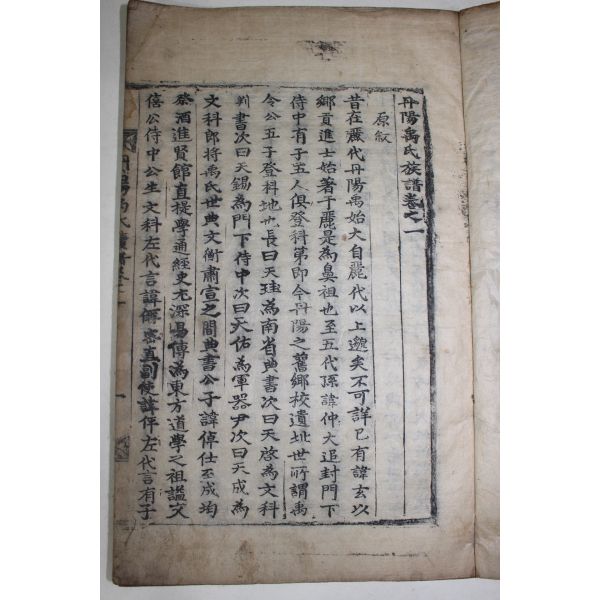 丹陽禹氏族譜卷之一
原叙
昔在麗代丹陽禹始大自麗代以上邈矣不可詳已有諱玄以
鄉貢進士始著于麗是為鼻祖也至五代孫諱仲大追封門下
侍中有子五人俱登科第即今丹陽之舊鄉校遺址世所謂禹
令公五子登科地也長曰天珪為南省典書次曰天啓為文科
判書次曰天錫為門下侍中次曰天佑為軍器尹次曰天成為
文科郎將禹氏世典文衡肅宣之間典書公子諱倬仕至成均
祭酒進賢館直提學通經史尤深易傳為東方道學之祖謚文
僖公侍中公生文科左代言諱偁密直副使諱伴左代言有子